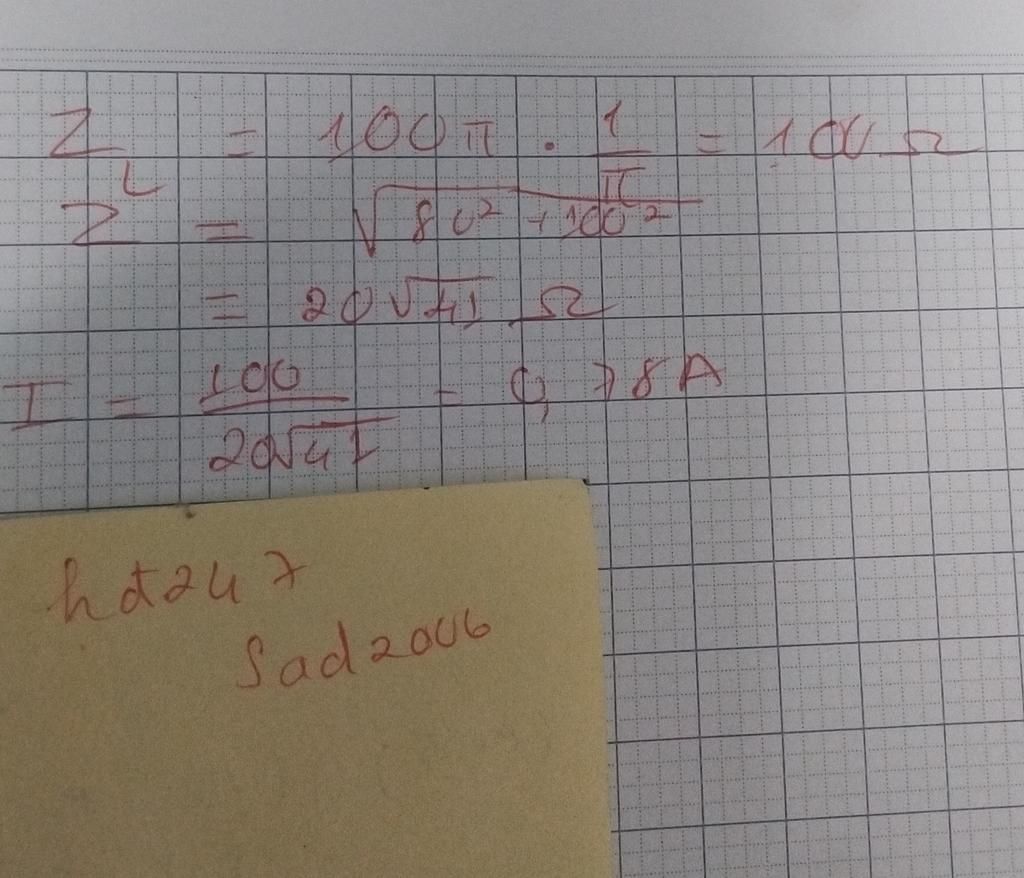 Z_L = 100π · 1/π = 100 Ω
Z = √(80² + 100²)
= 20√41 Ω
I = 100/(20√41) = 0,78A
hd247
Sad2006